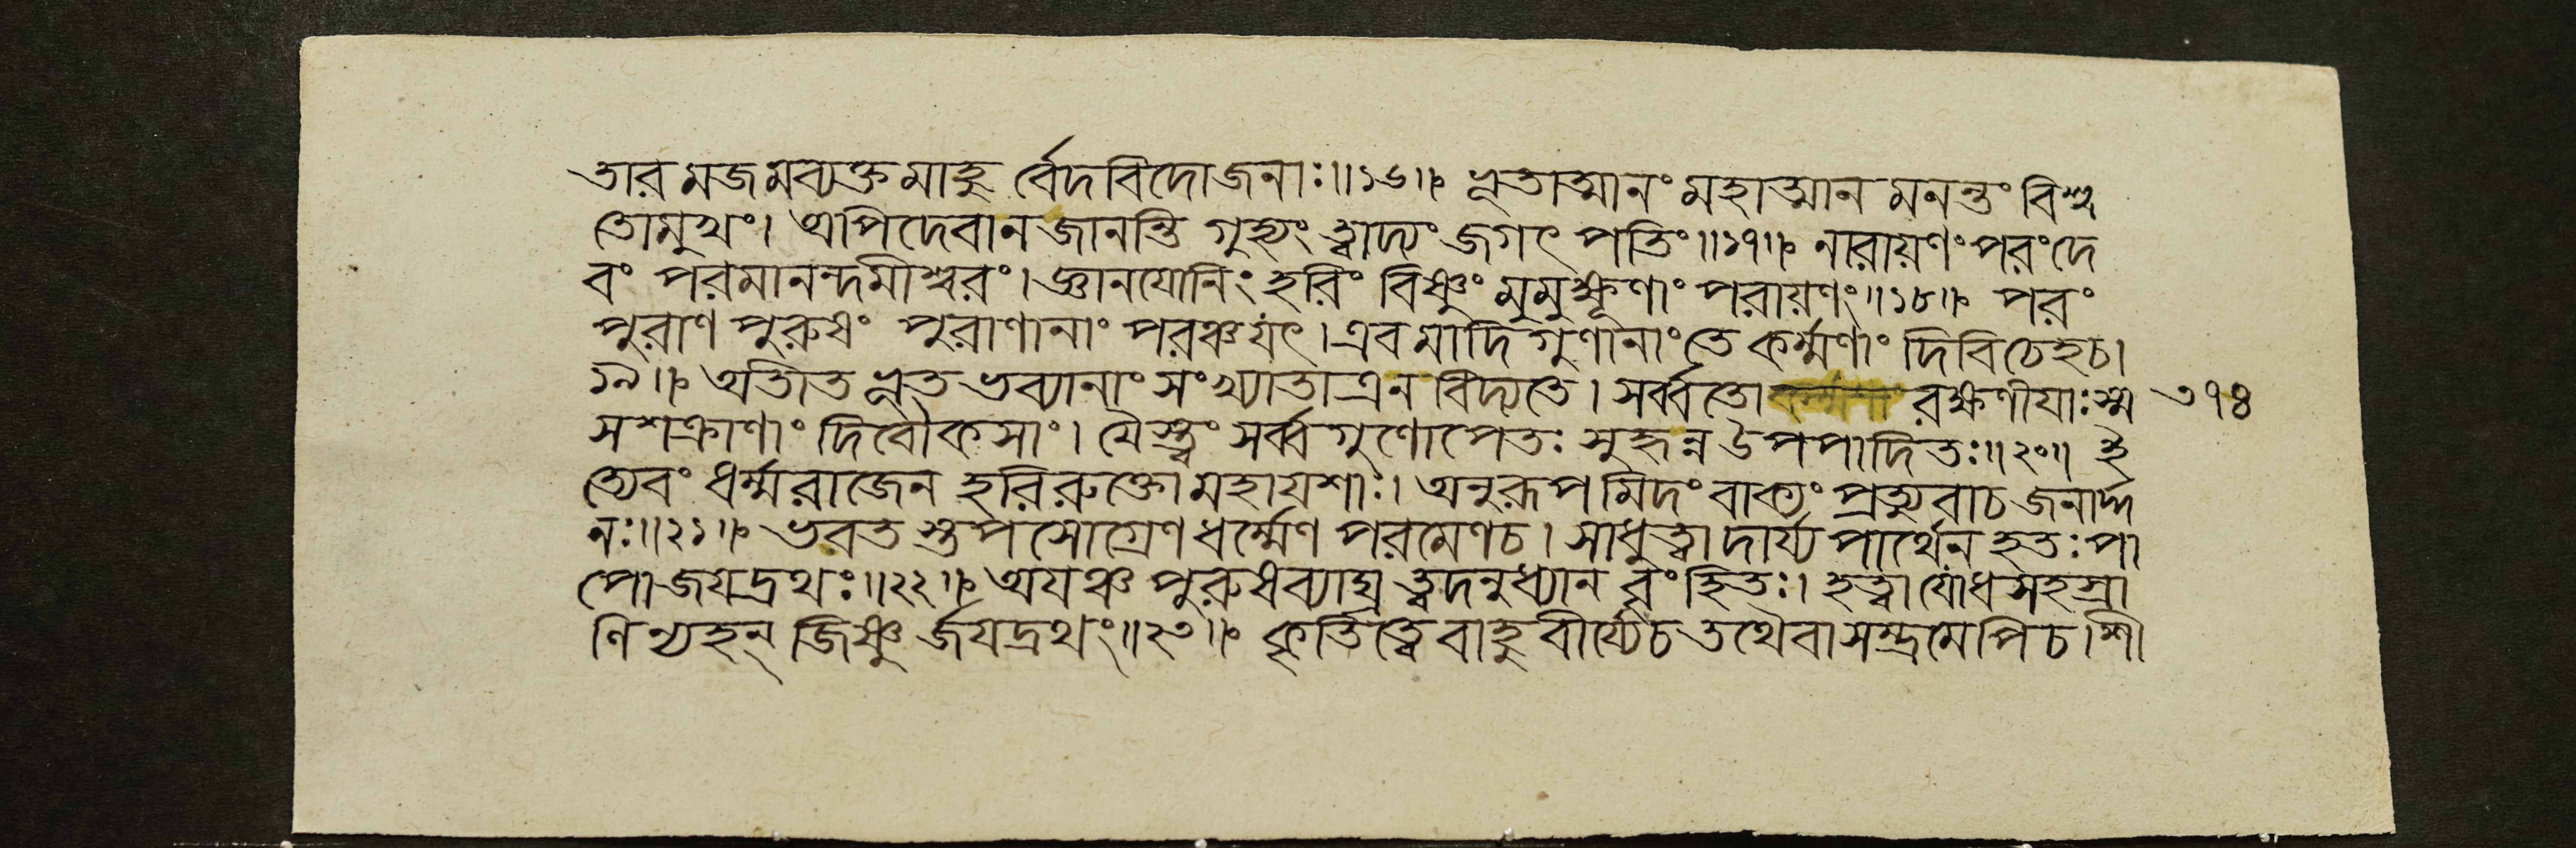 তার মজমব্যক্তমাহু র্বেদবিদোজনাঃ॥১৬॥ ভূতাত্মানং মহাত্মান মনন্তং বিশ্ব
তোমুখং। অপিদেবানজানন্তি গুহ্যং ত্বাদ্যং জগৎ পতিং॥১৭॥ নারায়ণং পরংদে
বং পরমানন্দমীশ্বরং। জ্ঞানযোনিং হরিং বিষ্ণুং মুমুক্ষূণাং পরায়ণং॥১৮॥ পরং
পুরাণ পুরুষং পুরাণানাং পরঞ্চযৎ। এবমাদি গুণানাং তে কর্ম্মণাং দিবিচেহচ।
১৯॥ অতীত ভূত ভব্যানাং সংখ্যাতাত্রন বিদ্যতে। সর্ব্বতো রক্ষণীয়াঃস্ম ৩৭৪
সশক্রাণাং দিবৌকসাং। যৈস্ত্বং সর্ব্বগুণোপেতঃ সুহৃন্ন উপপাদিতঃ॥২০॥ ই
ত্যেবং ধর্ম্মরাজেন হরিরুক্তোমহাযশাঃ। অনুরূপমিদং বাক্যং প্রত্যুবাচ জনার্দ্দ
নঃ॥২১॥ ভবত স্তপসোগ্রেণ ধর্ম্মেণ পরমেণচ। সাধুত্বাদার্য্য পার্থেন হতঃ পা
পোজযদ্রথঃ॥২২॥ অযঞ্চ পুরুষব্যাঘ্র ত্বদনুধ্যান বৃংহিতঃ। হত্বাযোধসহস্রা
ণিন্যহন্ জিষ্ণু র্জযদ্রথং॥২৩॥ কৃতিত্বেবাহু বীর্য্যেচ তথৈবাসম্ভ্রমেপিচ।শী